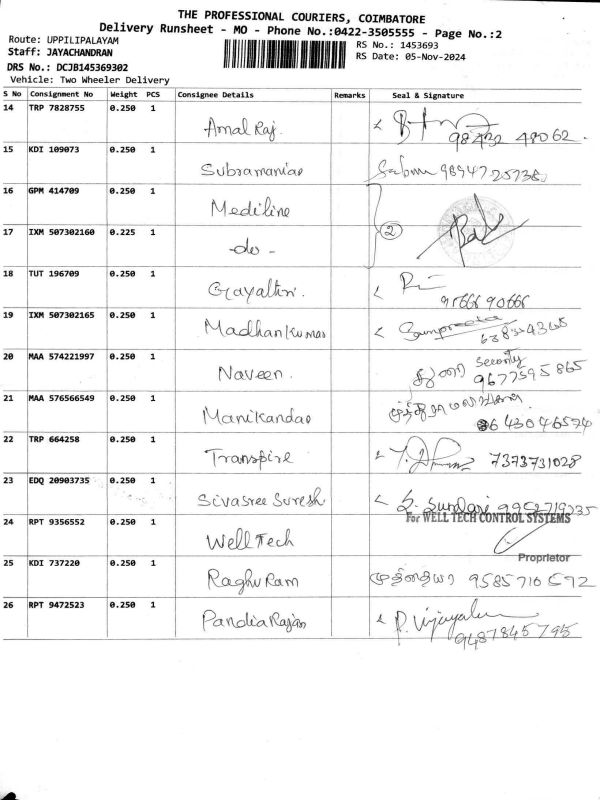 THE PROFESSIONAL COURIERS, COIMBATORE
Delivery Runsheet - MO - Phone No.:0422-3505555 - Page No.:2
Route: UPPILIPALAYAM
RS No.: 1453693
Staff: JAYACHANDRAN
RS Date: 05-Nov-2024
DRS No.: DCJB145369302
Vehicle: Two Wheeler Delivery
S No Consignment No Weight PCS Consignee Details Remarks Seal & Signature
14 TRP 7828755 0.250 1 Amal Raj. 98432 48062.
15 KDI 109073 0.250 1 Subramanian
16 GPM 414709 0.250 1 Mediline
17 IXM 507302160 0.225 1 -do- 2
18 TUT 196709 0.250 1 Gayathri. 95666 90666
19 IXM 507302165 0.250 1 Madhan Kumar
20 MAA 574221997 0.250 1 Naveen. Security 9677595865
21 MAA 576566549 0.250 1 Manikandan
22 TRP 664258 0.250 1 Transpire 7373731028
23 EDQ 20903735 0.250 1 Sivasree Suresh S. Sundari 9952719235
For WELL TECH CONTROL SYSTEMS
24 RPT 9356552 0.250 1 Well Tech
Proprietor
25 KDI 737220 0.250 1 Raghu Ram முத்தையா 9585710592
26 RPT 9472523 0.250 1 Pandia Rajan 9487845795